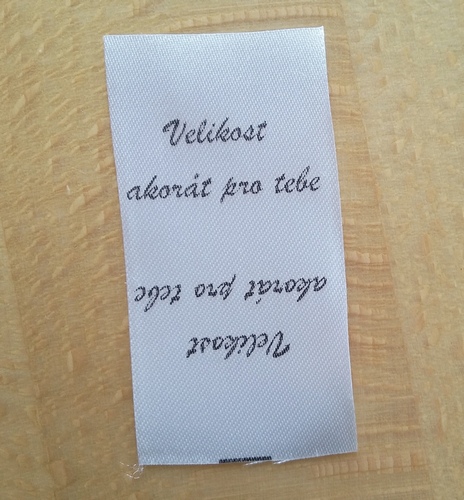 Velikost
akorát pro tebe
akorát pro tebe
Velikost